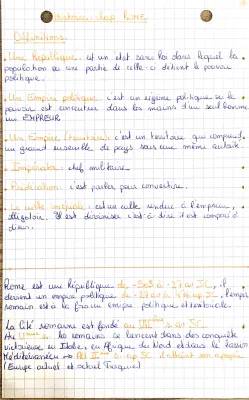 Histoire : chap ROME
Définitions :
• Une République : est un état sans Roi dans lequel la
population ou une partie de celle-ci détient le pouvoir
politique.
• Un Empire politique : c'est un régime politique où le
pouvoir est concentré dans les mains d'un seul homme
un EMPEREUR.
• Un Empire territorial : c'est un territoire qui comprend
un grand ensemble de pays sous une même autorité.
• Imperator : chef militaire
• : c'est parler pour convertire.
• Le culte impérial : est un culte rendue à l'empereur,
divinisé c'est à dire il est comparé à
dieu.
Rome est une République de -509 à -27 av JC, il
devient un empire politique de -27 à 476 ap JC, l'empire
romain est à la fois un empire politique et territoriale.
La Cité romaine est fondé au av JC.
Au les romains se lancent dans des conquête
victorieuse en Italie, en Afrique du Nord et dans le bassin
Méditerranéen → Au II ap JC il atteint son apogée
(Europe actuel et actuel Turquie)